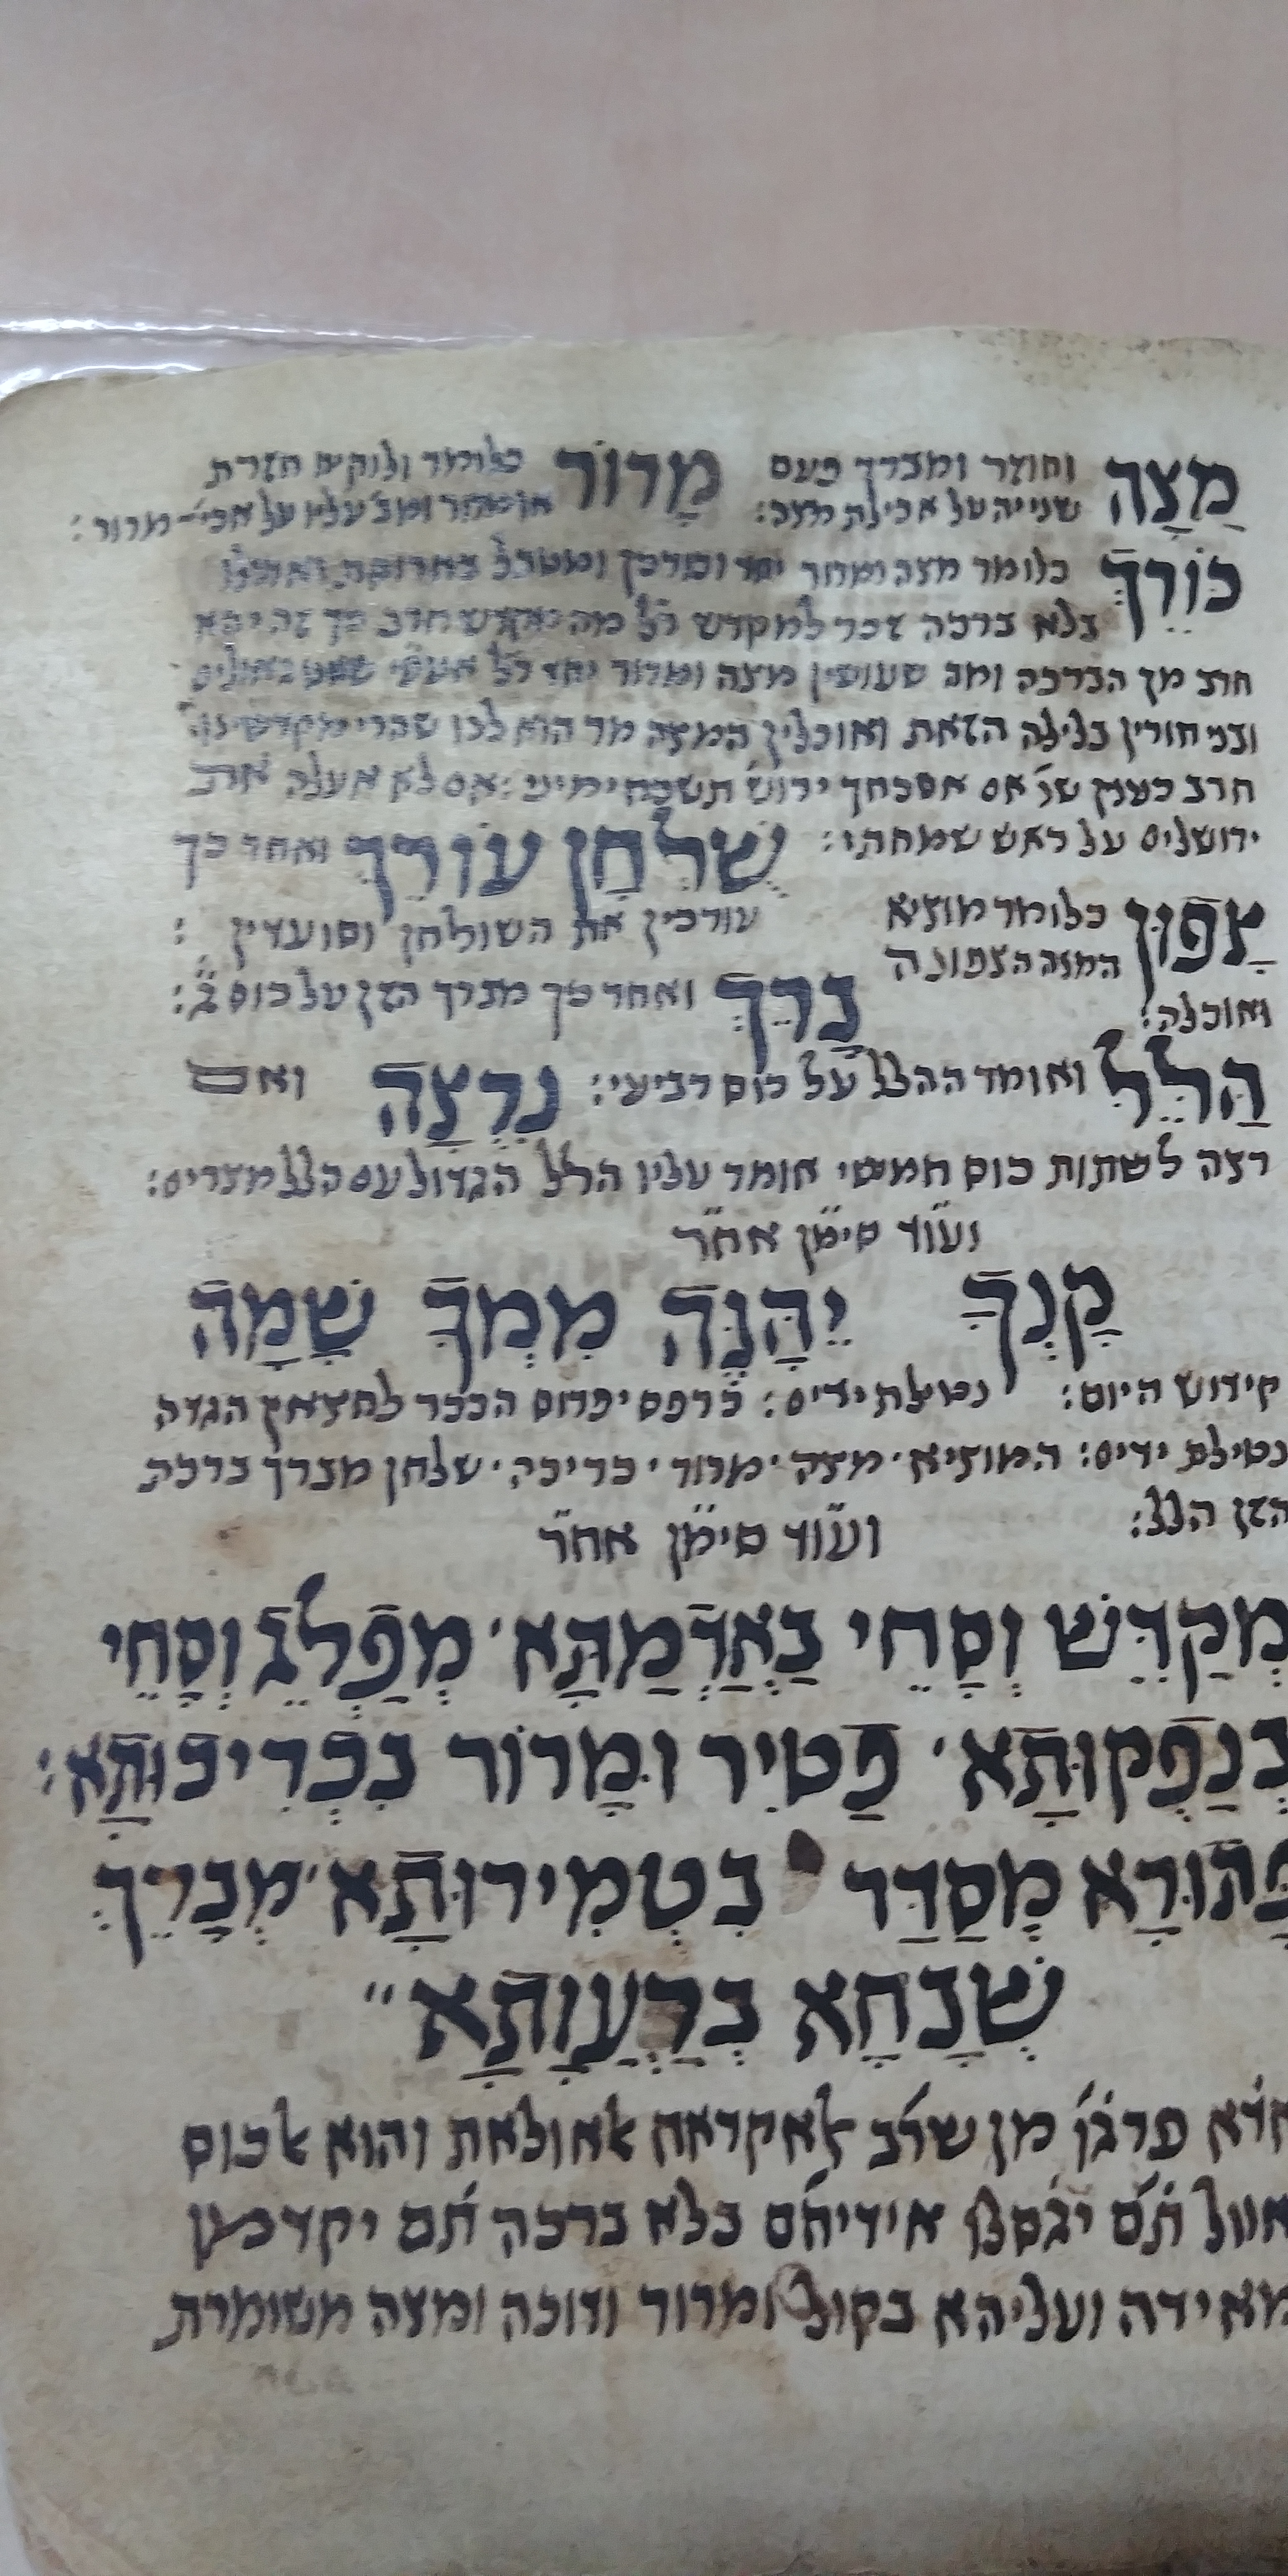 מַצָּה וחוזר ומברך פעם מָרוֹר כלומר ולוקים חזרת
שנייה על אכילת מצה: ומב׳ עליו על אכי׳ מרור:
כּוֹרֵךְ כלומר מצה ומרור יחד וכורכן ומטבל בחרוסת
בלא ברכה זכר למקדש מה חרב כך זה
חרב מן הברכה ומה שעושין מצה ומרור יחד
ובני חורין בלילה הזאת ואוכלין המצה מר הוא לנו שהרי מקדשינו
חרב כענין אם אשכחך ירוש׳ תשכח ימיני: אם לא אעלה את
ירושלים על ראש שמחתי: שֻׁלְחָן עוֹרֵךְ ואחר כך
צָפוּן כלומר מוציא עורכין את השולחן וסועדין:
המצה הצפונה בָּרֵךְ ואחר כך מברך הזן על כוס ג׳:
ואוכלה:
הַלֵּל ואומר ההלל על כוס רביעי: נִרְצָה ואם
רצה לשתות כוס חמישי אומר עליו הלל הגדול עם הלל מצרים:
ועוד סימן אחר
קַנְךָּ יֵהַנֶּה מִמְךָּ שָׁמָּה
קידוש היום: נטילת ידים: כרפס יפרוס הככר לחצאין הגדה
נטילת ידים: המוציא· מצה· מרור· כריכה· שלחן מברך ברכת
הזן הלל:
ועוד סימן אחר
מְקַדֵּשׁ וְסָחֵי בַּאֲדַמְתָּא· מְפַלֵּג וְסָחֵי
בְּנַפְקוּתָא· פַּטִּיר וּמָרוֹר בִּכְרִיכוּתָא:
פָּתוּרָא מְסַדַּר בִּטְמִירוּתָא· מְבָרֵךְ
שְׁבָחָא בְּרַעֲוָתָא״
אדא פרגו מן שרב לאקראח לאולאת והוא לכוס
אוול תם יגסלו אידיהם בלא ברכה תם יקדמון
מאידה ועליהא בקול ומרור ודוכה ומצה משומרת